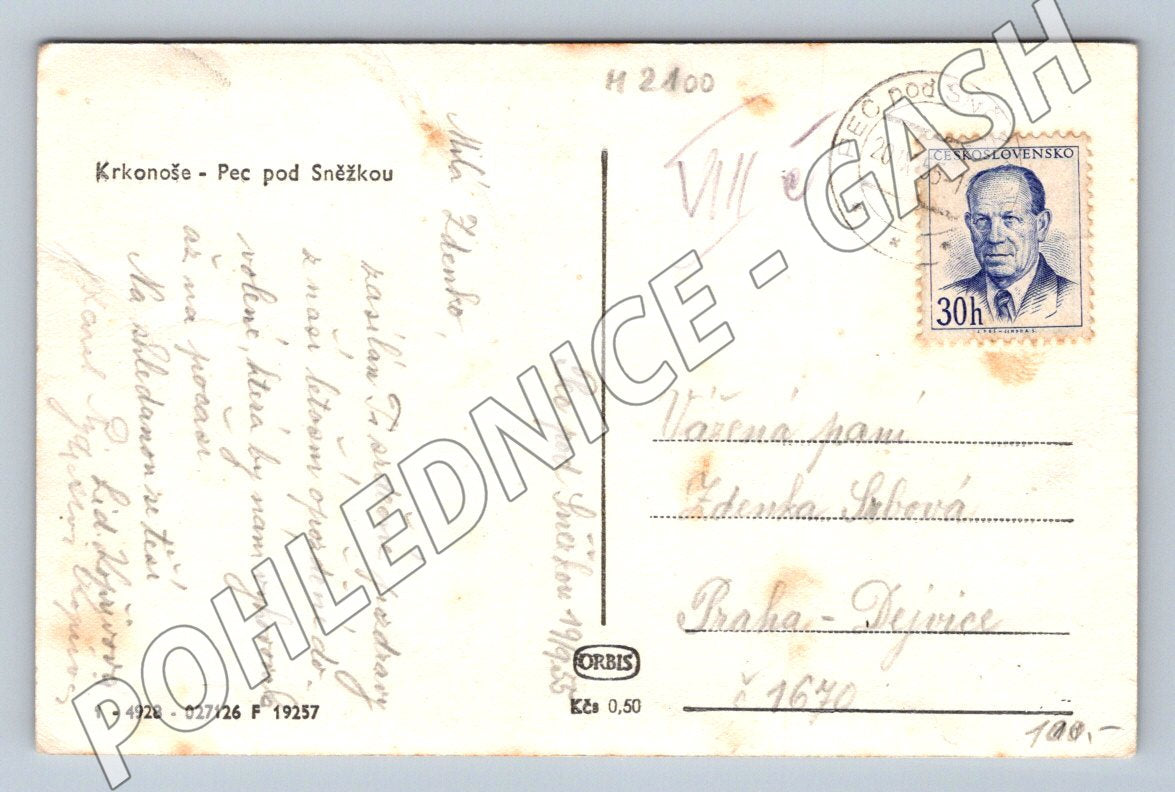 H 2100
Krkonoše - Pec pod Sněžkou
VIII
PEC pod
ČESKOSLOVENSKO
30h
Milá Zdenko,
zasílám Ti srdečné pozdravy
z naší letošní opožděné do-
volené, která by nám vyhovovala
až na počasí
Na shledanou se těší
Karel
Lid.
Pec pod Sněžkou 19/9 55
Vážená paní
Zdenka Srbová
Praha - Dejvice
č 1670
ORBIS
Kčs 0,50
1 - 4928 - 027126 F 19257
100.-
POHLEDNICE - GASH